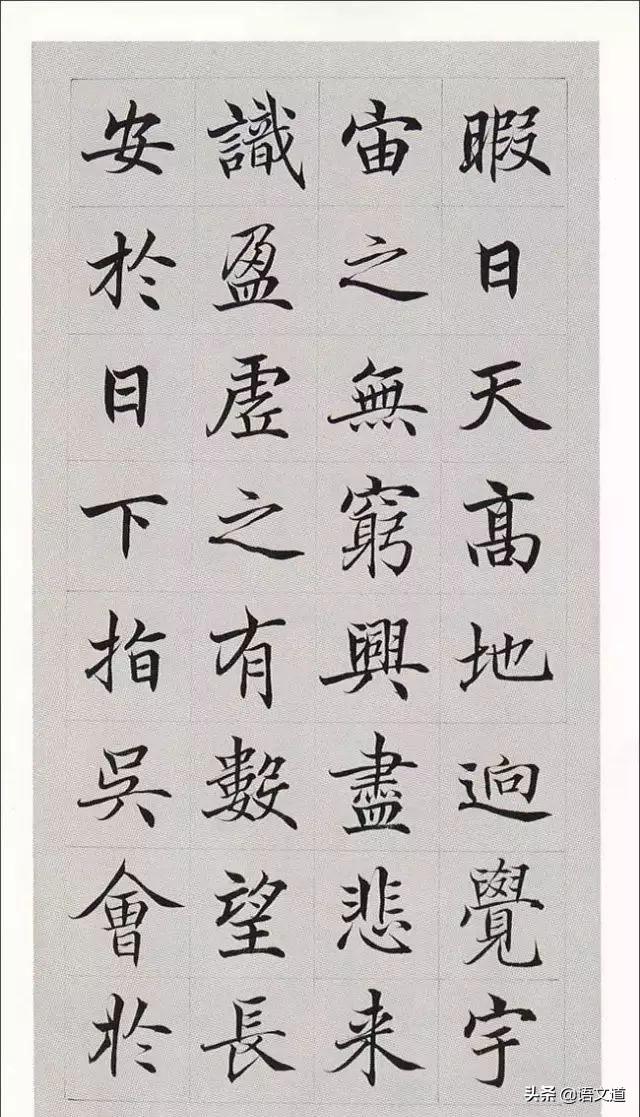 暇日天高地迥覺宇
宙之無窮興盡悲来
識盈虛之有數望長
安於日下指吳會於
头条 @语文道